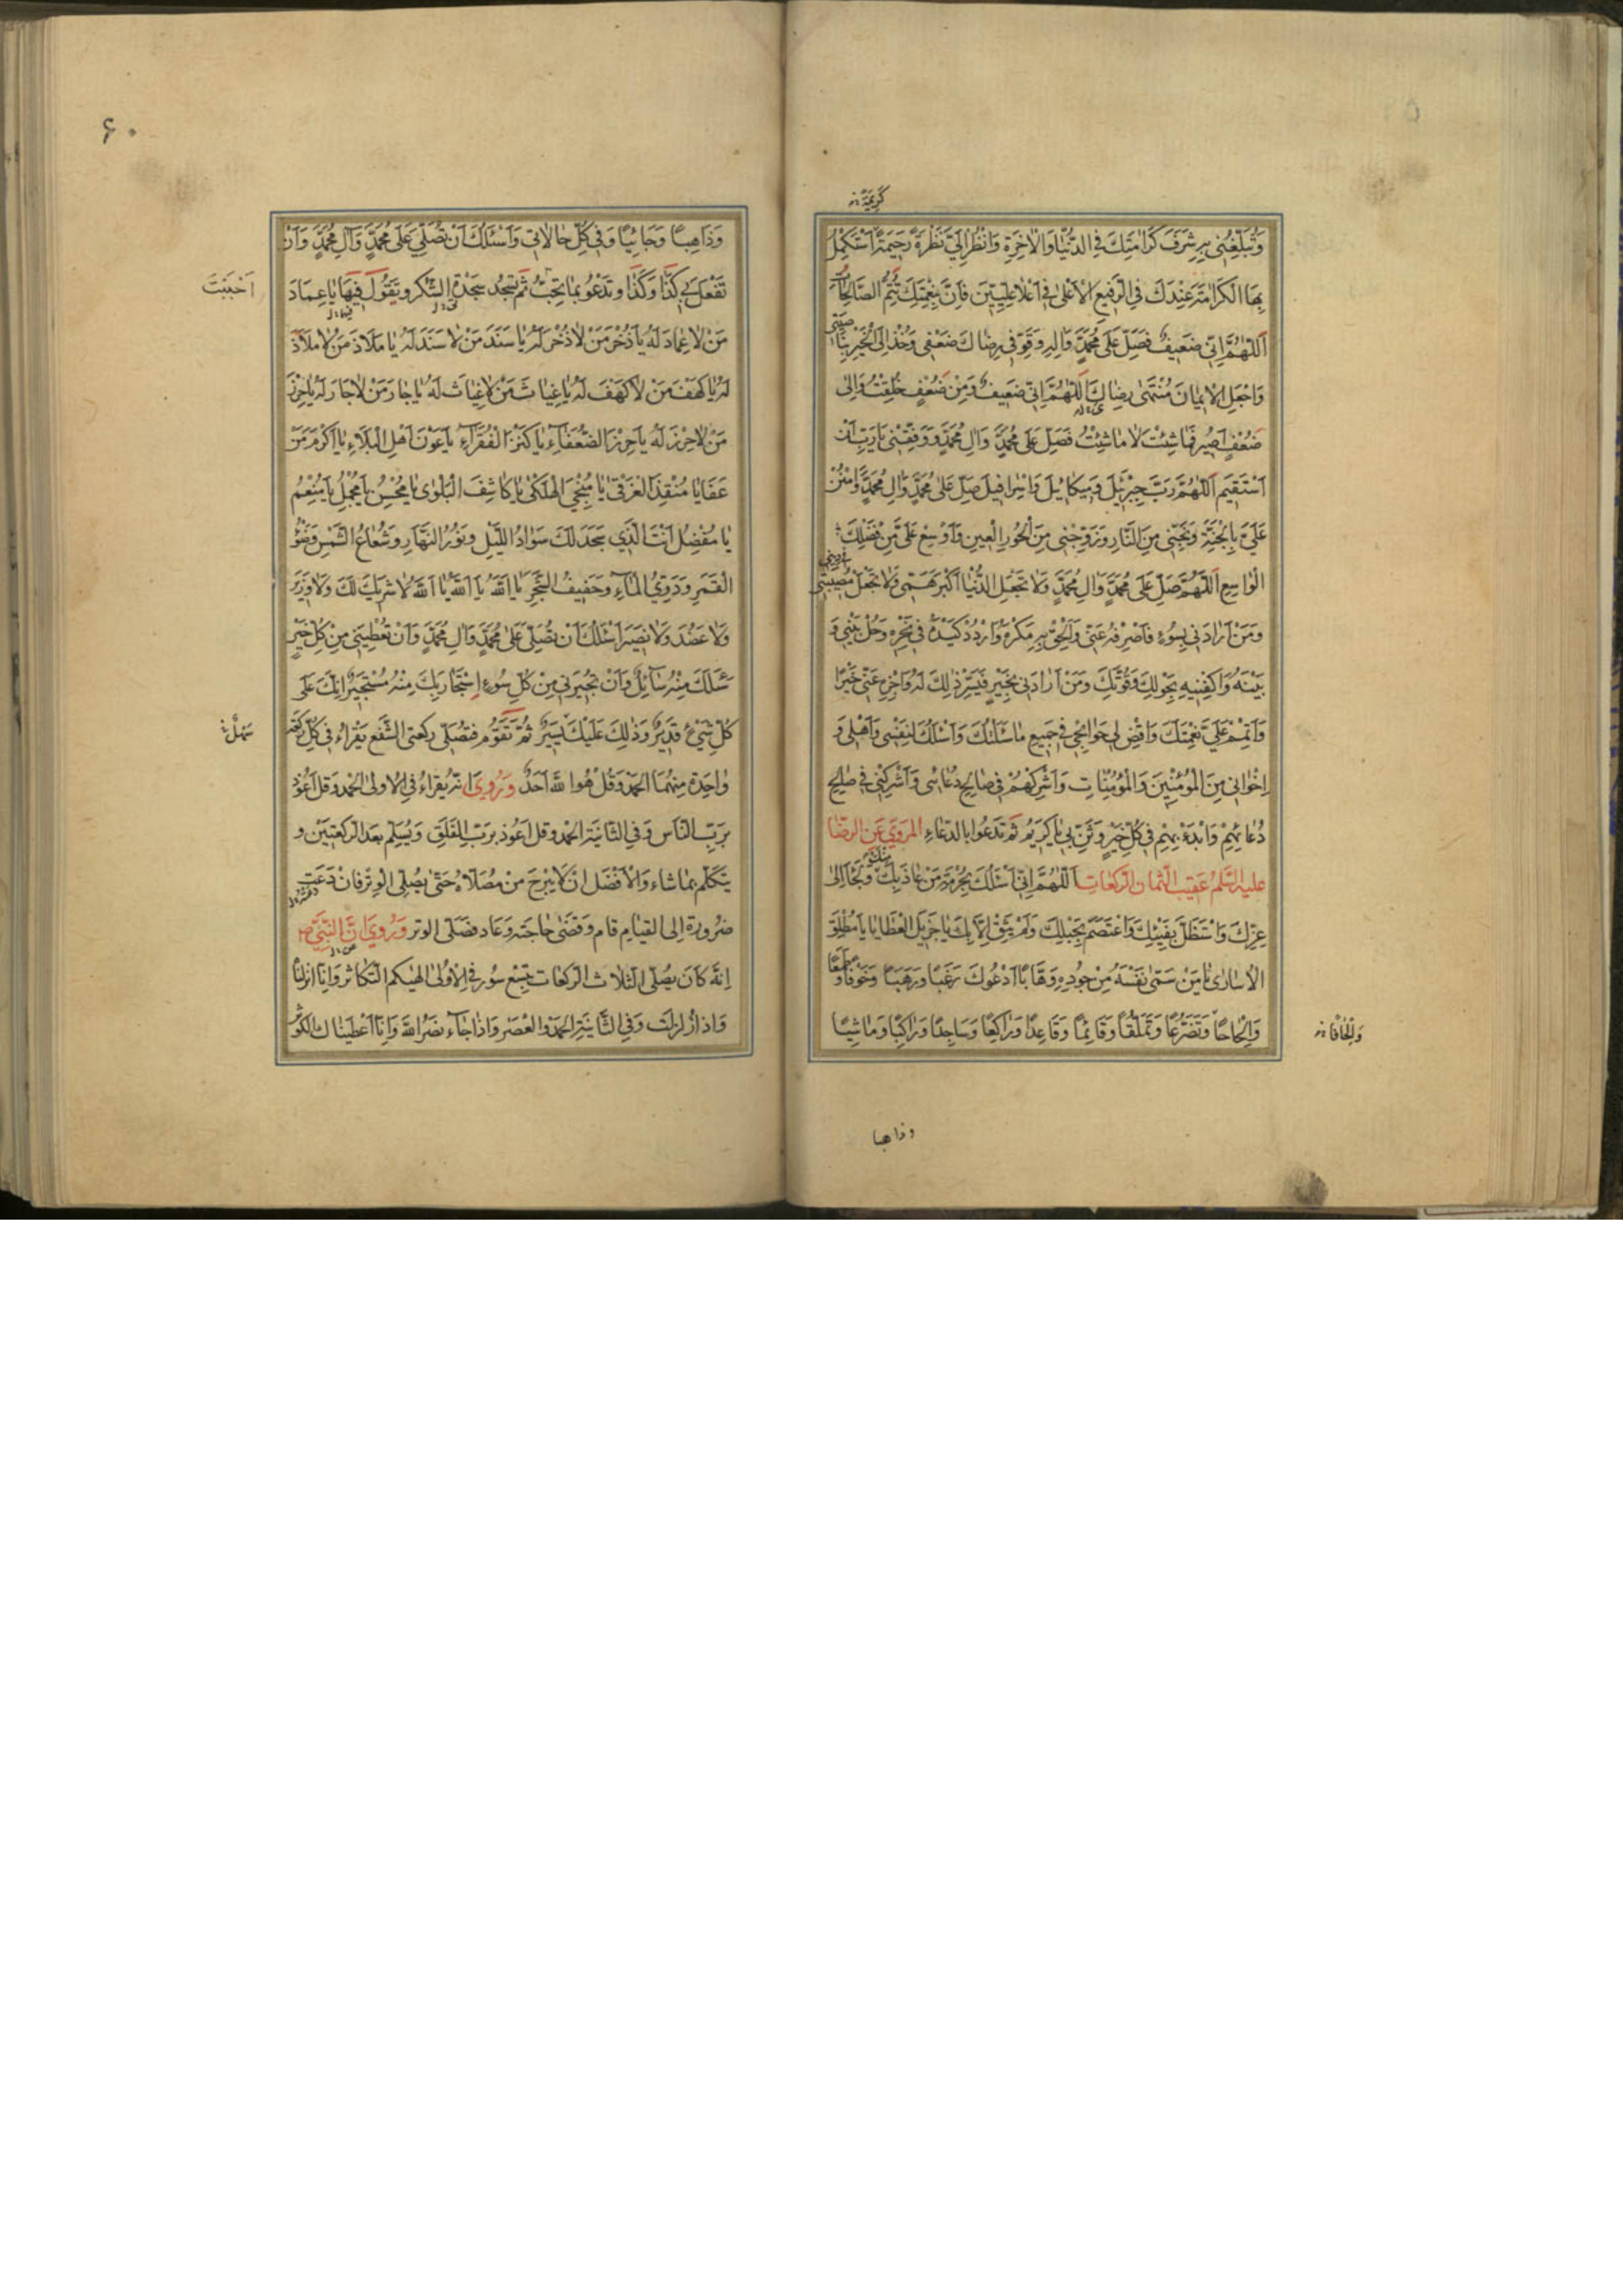 كَرِيمَةً
وَتُبَلِّغُنِي بِهِ شَرَفَ كَرَامَتِكَ فِي الدُّنْيَا وَالْاخِرَةِ وَانْظُرْ اِلَيَّ نَظْرَةً رَحِيمَةً اَسْتَكْمِلُ
بِهَا الْكَرَامَةَ عِنْدَكَ فِي الرَّفِيعِ الْاَعْلٰى فِي اَعْلَا عِلِّيِّينَ فَاِنَّ بِنِعْمَتِكَ تَتِمُّ الصَّالِحَاتُ
اَللّٰهُمَّ اِنِّي ضَعِيفٌ فَصَلِّ عَلٰى مُحَمَّدٍ وَاٰلِهِ وَقَوِّ فِي رِضَاكَ ضَعْفِي وَخُذْ اِلَى الْخَيْرِ بِنَاصِيَتِي
وَاجْعَلِ الْاِيمَانَ مُنْتَهٰى رِضَاكَ اَللّٰهُمَّ اِنِّي ضَعِيفٌ وَمِنْ ضَعْفٍ خُلِقْتُ وَاِلٰى
ضَعْفٍ اَصِيرُ فَمَا شِئْتَ لَا مَا شِئْتُ فَصَلِّ عَلٰى مُحَمَّدٍ وَاٰلِ مُحَمَّدٍ وَوَفِّقْنِي يَا رَبِّ اَنْ
اَسْتَقِيمَ اَللّٰهُمَّ رَبَّ جِبْرَئِيلَ وَمِيكَائِيلَ وَاِسْرَافِيلَ صَلِّ عَلٰى مُحَمَّدٍ وَاٰلِ مُحَمَّدٍ وَامْنُنْ
عَلَيَّ بِالْجَنَّةِ وَنَجِّنِي مِنَ النَّارِ وَزَوِّجْنِي مِنَ الْحُورِ الْعِينِ وَاَوْسِعْ عَلَيَّ مِنْ فَضْلِكَ
الْوَاسِعِ اَللّٰهُمَّ صَلِّ عَلٰى مُحَمَّدٍ وَاٰلِ مُحَمَّدٍ وَلَا تَجْعَلِ الدُّنْيَا اَكْبَرَ هَمِّي وَلَا تَجْعَلْ مُصِيبَتِي فِي دِينِي
وَمَنْ اَرَادَنِي بِسُوءٍ فَاصْرِفْهُ عَنِّي وَاَلْحِقْ بِهِ مَكْرَهُ وَارْدُدْ كَيْدَهُ فِي نَحْرِهِ وَحُلْ بَيْنِي وَ
بَيْنَهُ وَاكْفِنِيهِ بِحَوْلِكَ وَقُوَّتِكَ وَمَنْ اَرَادَنِي بِخَيْرٍ فَيَسِّرْ ذٰلِكَ لَهُ وَاجْزِهِ عَنِّي خَيْرًا
وَاَتْمِمْ عَلَيَّ نِعْمَتَكَ وَاقْضِ لِي حَوَائِجِي فِي جَمِيعِ مَا سَئَلْتُكَ وَاَسْئَلُكَ لِنَفْسِي وَاَهْلِي وَ
اِخْوَانِي مِنَ الْمُؤْمِنِينَ وَالْمُؤْمِنَاتِ وَاَشْرِكْهُمْ فِي صَالِحِ دُعَائِي وَاَشْرِكْنِي فِي صَالِحِ
دُعَائِهِمْ وَابْدَءْ بِهِمْ فِي كُلِّ خَيْرٍ وَثَنِّ بِي يَا كَرِيمُ ثم تدعوا بالدعاء المروي عن الرضا
عليه السلم عقيب الثمان الركعات اَللّٰهُمَّ اِنِّي اَسْئَلُكَ بِحُرْمَةِ مَنْ عَاذَ بِكَ مِنْكَ وَلَجَأَ اِلٰى
عِزِّكَ وَاسْتَظَلَّ بِفَيْئِكَ وَاعْتَصَمَ بِحَبْلِكَ وَلَمْ يَثِقْ اِلَّا بِكَ يَا جَزِيلَ الْعَطَايَا يَا مُطْلِقَ
الْاُسَارٰى يَا مَنْ سَمّٰى نَفْسَهُ مِنْ جُودِهِ وَهَّابًا اَدْعُوكَ رَغَبًا وَرَهَبًا وَخَوْفًا وَطَمَعًا
وَاِلْحَاحًا وَتَضَرُّعًا وَتَمَلُّقًا وَقَائِمًا وَقَاعِدًا وَرَاكِعًا وَسَاجِدًا وَرَاكِبًا وَمَاشِيًا
وَاِلْحَافًا
وذاهبا
۶۰
وَذَاهِبًا وَجَائِيًا وَفِي كُلِّ حَالَاتِي وَاَسْئَلُكَ اَنْ تُصَلِّيَ عَلٰى مُحَمَّدٍ وَاٰلِ مُحَمَّدٍ وَاَنْ
تَفْعَلَ بِي كَذَا وَكَذَا وتدعو بما تحب ثم تسجد سجدة الشكر وتقول فيها يَا عِمَادَ
اَحْبَبْتَ
مَنْ لَا عِمَادَ لَهُ يَا ذُخْرَ مَنْ لَا ذُخْرَ لَهُ يَا سَنَدَ مَنْ لَا سَنَدَ لَهُ يَا مَلَاذَ مَنْ لَا مَلَاذَ
لَهُ يَا كَهْفَ مَنْ لَا كَهْفَ لَهُ يَا غِيَاثَ مَنْ لَا غِيَاثَ لَهُ يَا جَارَ مَنْ لَا جَارَ لَهُ يَا حِرْزَ
مَنْ لَا حِرْزَ لَهُ يَا حِرْزَ الضُّعَفَاءِ يَا كَنْزَ الْفُقَرَاءِ يَا عَوْنَ اَهْلِ الْبَلَاءِ يَا اَكْرَمَ مَنْ
عَفَا يَا مُنْقِذَ الْغَرْقٰى يَا مُنْجِيَ الْهَلْكٰى يَا كَاشِفَ الْبَلْوٰى يَا مُحْسِنُ يَا مُجْمِلُ يَا مُنْعِمُ
يَا مُفْضِلُ اَنْتَ الَّذِي سَجَدَ لَكَ سَوَادُ اللَّيْلِ وَنُورُ النَّهَارِ وَشُعَاعُ الشَّمْسِ وَضَوْءُ
الْقَمَرِ وَدَوِيُّ الْمَاءِ وَحَفِيفُ الشَّجَرِ يَا اَللّٰهُ يَا اَللّٰهُ يَا اَللّٰهُ لَا شَرِيكَ لَكَ وَلَا وَزِيرَ
وَلَا عَضُدَ وَلَا نَصِيرَ اَسْئَلُكَ اَنْ تُصَلِّيَ عَلٰى مُحَمَّدٍ وَاٰلِ مُحَمَّدٍ وَاَنْ تُعْطِيَنِي مِنْ كُلِّ خَيْرٍ
سَئَلَكَ مِنْهُ سَائِلٌ وَاَنْ تُجِيرَنِي مِنْ كُلِّ سُوءٍ اِسْتَجَارَ بِكَ مِنْهُ مُسْتَجِيرٌ اِنَّكَ عَلٰى
كُلِّ شَيْءٍ قَدِيرٌ وَذٰلِكَ عَلَيْكَ يَسِيرٌ ثم تقوم فتصلي ركعتي الشفع يقراء في كل ركعة
سَهْلٌ
واحدة منهما الحمد وقل هو الله احد وروي انه يقراء في الاولى الحمد وقل اعوذ
برب الناس وفي الثانية الحمد وقل اعوذ برب الفلق ويسلم بعد الركعتين و
يتكلم بما شاء والافضل ان لا يبرح من مصلاه حتى يصلي الوتر فان دعت
ضرورة الى القيام قام وقضى حاجته وعاد فصلى الوتر وروي ان النبي ص
انه كان يصلي الثلاث الركعات بتسع سور في الاولى الهيكم التكاثر وانا انزلنا
واذا زلزلت وفي الثانية الحمد والعصر واذا جاء نصر الله وانا اعطيناك الكوثر